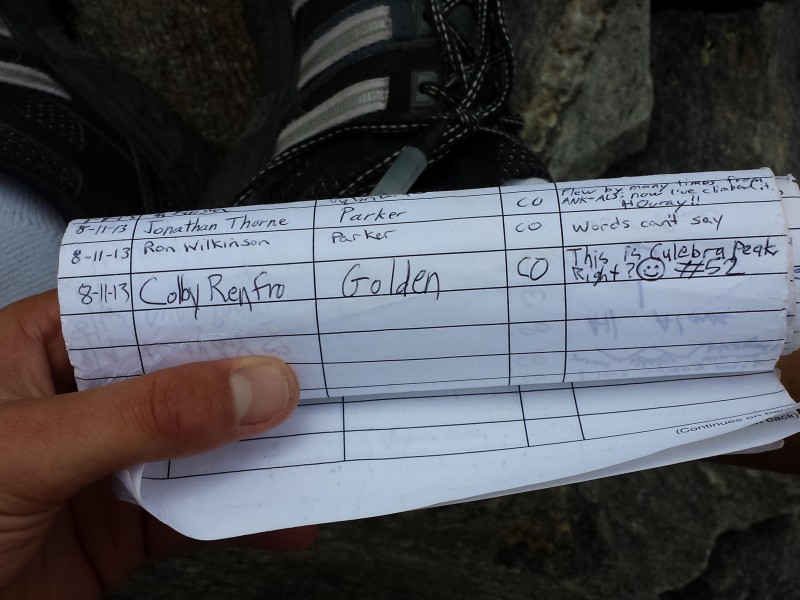 Flew by many times from
8-11-13 Jonathan Thorne Parker CO ANK-ALS; now I've climbed it.
HOuray!!
8-11-13 Ron Wilkinson Parker CO Words can't say
8-11-13 Colby Renfro Golden CO This is Culebra Peak
Right? ☺ #52
(Continues on back)